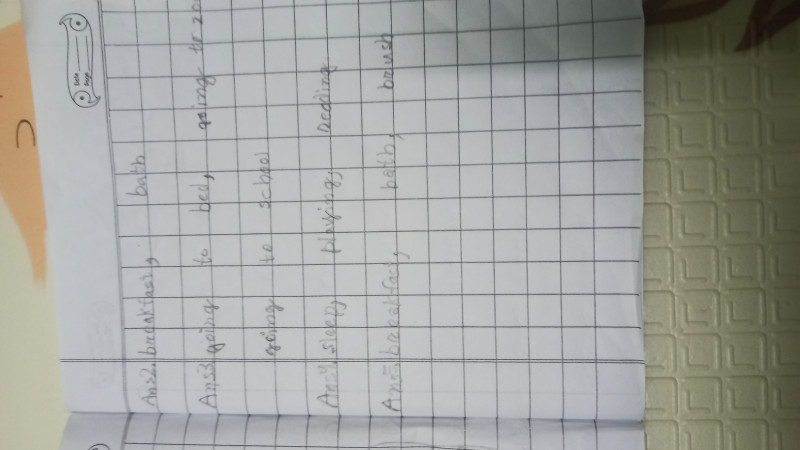 Date
Page
Ans2. breakfast, bath
Ans3 going to bed, going to zo
going to school
Ans4. sleep, playing, reading
Ans5. breakfast, bath, brush